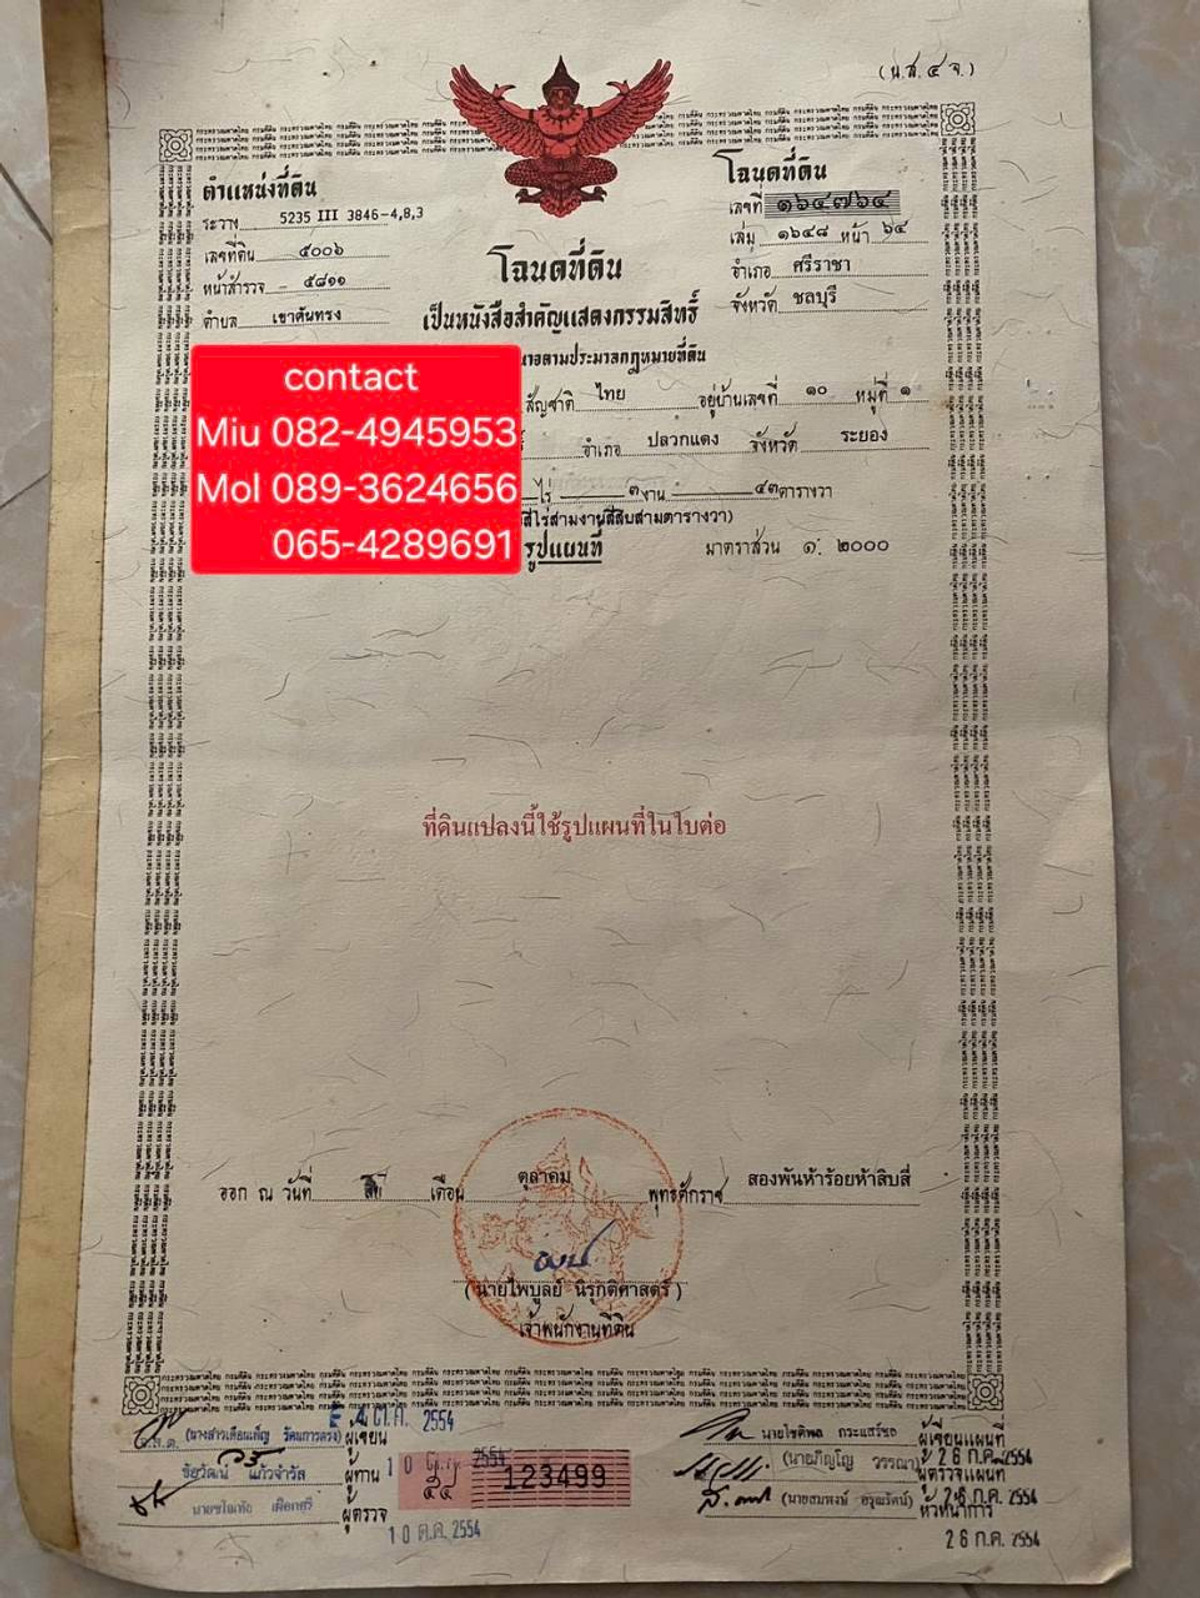 (น.ส. ๔ จ.)
ตำแหน่งที่ดิน
ระวาง 5235 III 3846-4,8,3
เลขที่ดิน ๕๐๐๖
หน้าสำรวจ ๕๘๑๑
ตำบล เขาคันทรง
โฉนดที่ดิน
เลขที่ ๑๖๔๗๖๔
เล่ม ๑๖๔๘ หน้า ๖๔
อำเภอ ศรีราชา
จังหวัด ชลบุรี
โฉนดที่ดิน
เป็นหนังสือสำคัญแสดงกรรมสิทธิ์
ตามประมวลกฎหมายที่ดิน
contact
Miu 082-4945953
Mol 089-3624656
065-4289691
สัญชาติ ไทย อยู่บ้านเลขที่ ๑๐ หมู่ที่ ๑
อำเภอ ปลวกแดง จังหวัด ระยอง
ไร่ ๓ งาน ๔๓ ตารางวา
สี่ไร่สามงานสี่สิบสามตารางวา)
รูปแผนที่ มาตราส่วน ๑: ๒๐๐๐
ที่ดินแปลงนี้ใช้รูปแผนที่ในใบต่อ
ออก ณ วันที่ สี่ เดือน ตุลาคม พุทธศักราช สองพันห้าร้อยห้าสิบสี่
(นายไพบูลย์ นิรุกติศาสตร์)
เจ้าพนักงานที่ดิน
4 ต.ค. 2554
ผู้เขียน
ชัยวัฒน์ แก้วจำรัส ผู้ทาน
ผู้ตรวจ
10 ต.ค. 2554
123499
นายโชติพล ผู้เขียนแผนที่
26 ก.ค. 2554
(นายภิญโญ วรรณา) ผู้ตรวจแผนที่
26 ก.ค. 2554
(นายสมพงษ์ อรุณรัตน์) หัวหน้าการ
26 ก.ค. 2554